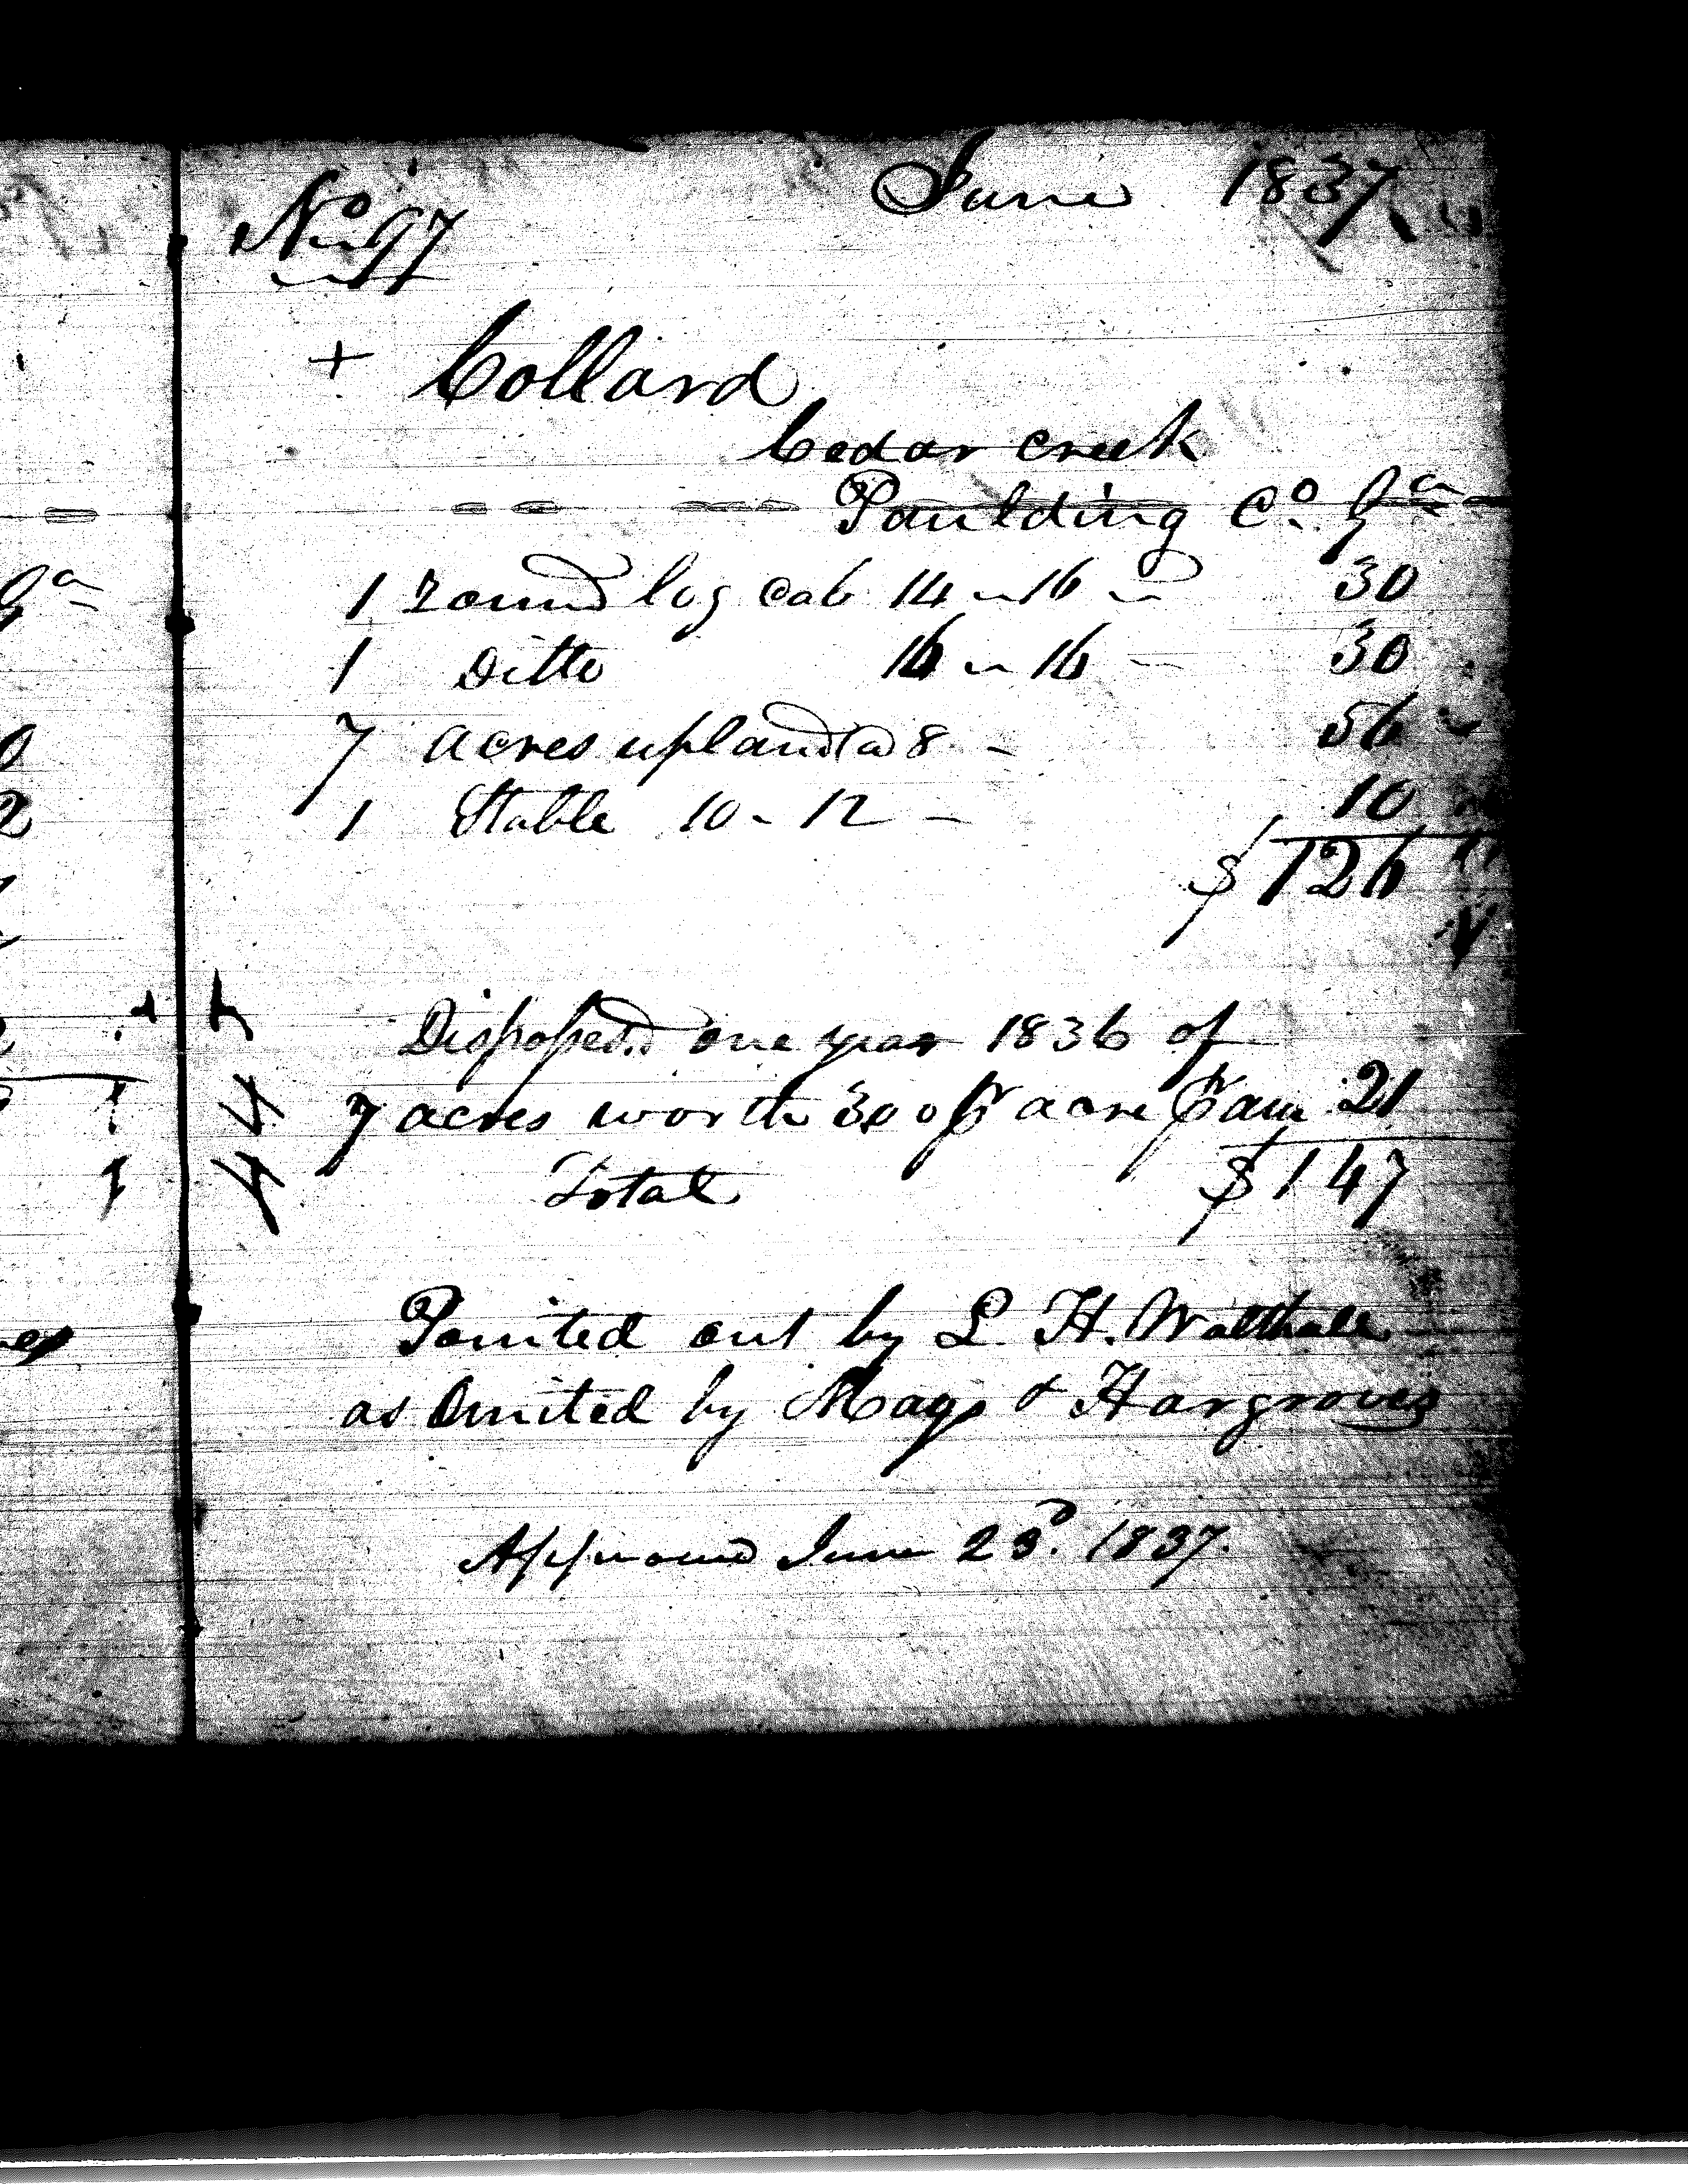 June 1837
No 97
+ Collard
Cedar creek
Paulding Co. Ga
1 round log cab 14 - 16 - 30
1 Ditto 16 - 16 - 30
7 acres upland @ 8 - 56
1 Stable 10 - 12 - 10
$ 126
Dispossesd one year 1836 of
7 acres worth 300 pr acre pr ann 21
Total $ 147
Pointed out by L. H. Walthall
as Omited by Mays & Hargroves
Approved June 23d. 1837.